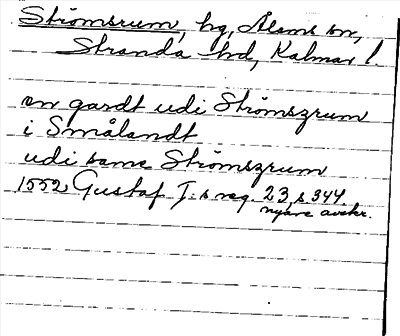 Strömsrum, hg, Ålems sn,
Stranda hd, Kalmar l.
en gardt udi Strömszrum
i Smålandt
udi same Strömszrum
1552 Gustaf I:s reg. 23, s 344.
nyare avskr.